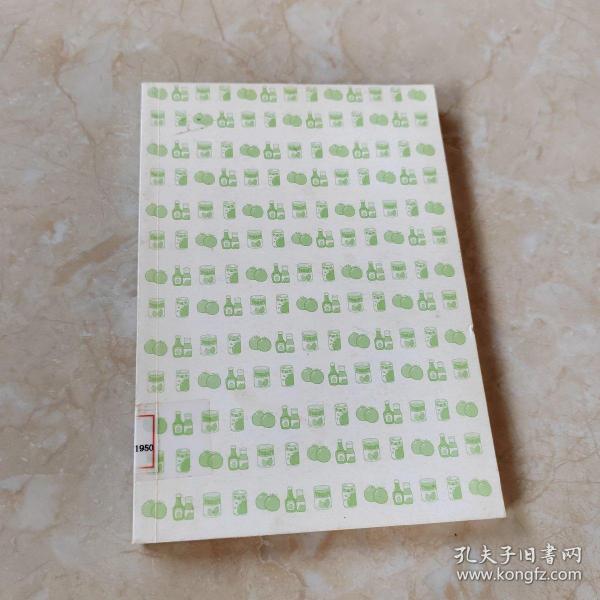 1950
孔夫子旧書网
www.kongfz.com